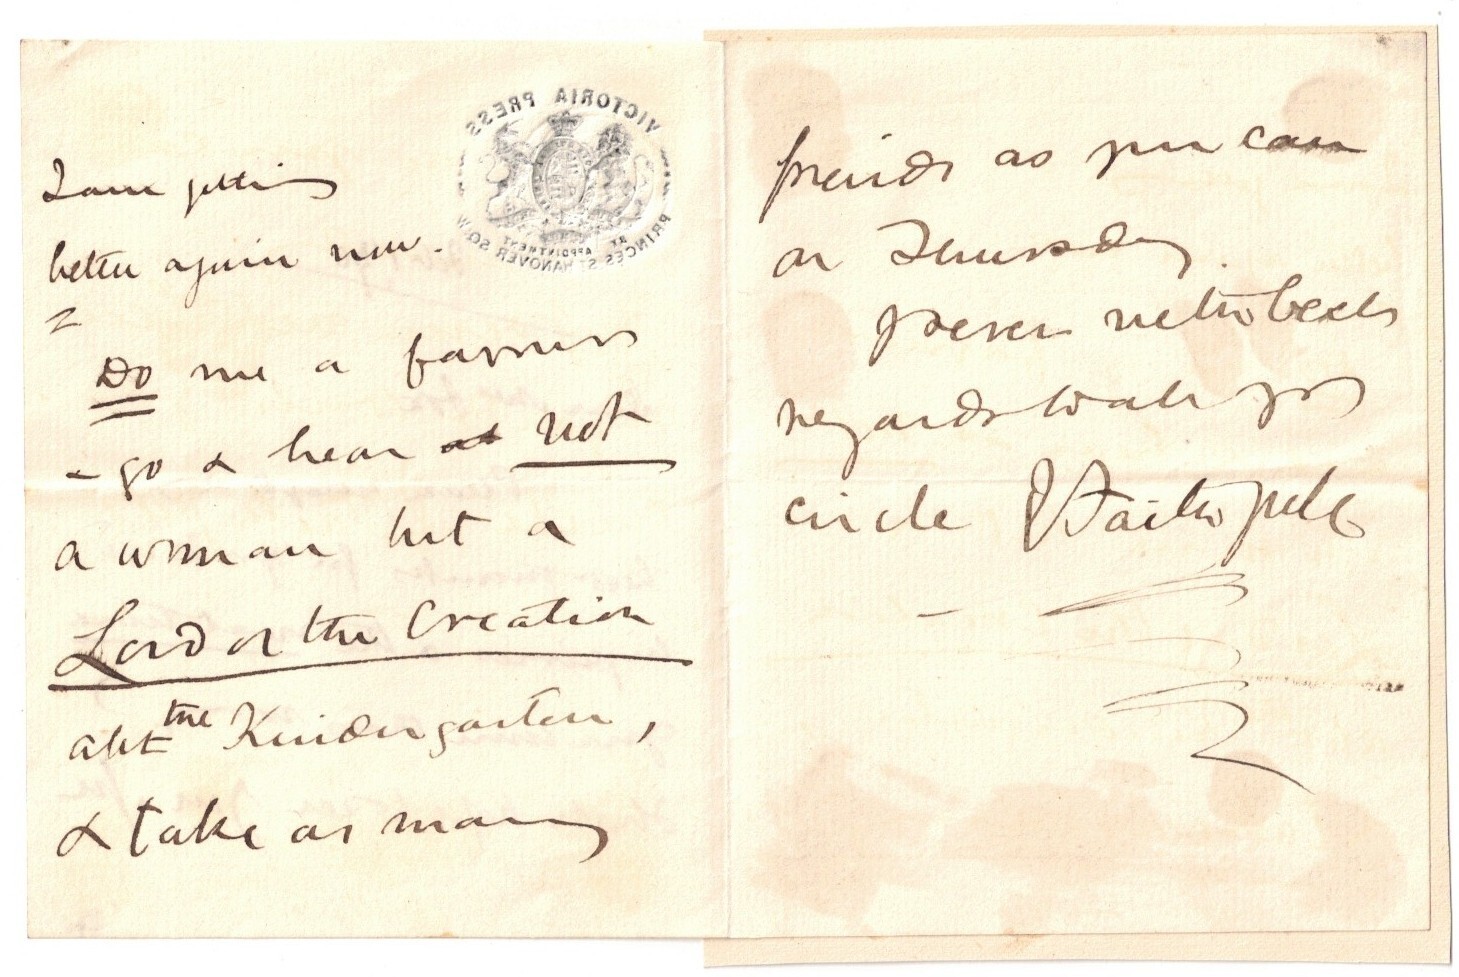 VICTORIA PRESS
BY APPOINTMENT
PRINCES ST HANOVER SQ W
I am getting
better again now.
Do me a favour
- go & hear at not
a woman but a
Lord of the Creation
abt the Kindergarten,
& take as many
friends as you can
on Thursday
with best
regards to all yr
circle Faithfull